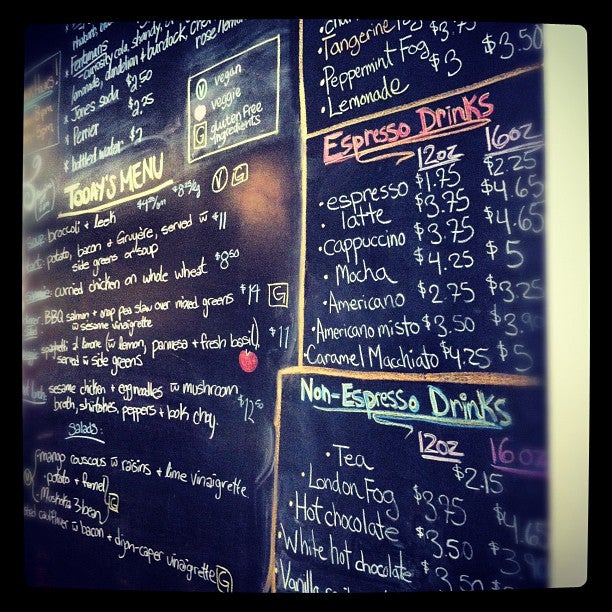 * Fentimans
curiosity cola, shandy,
dandelion & burdock,
rose lemon
* Jones soda $2.50
* Perrier $2.25
* bottled water $2
V vegan
veggie
G gluten free
ingredients
TODAY'S MENU
broccoli + leek V G
potato, bacon + Gruyère, served w $11
side greens or soup
curried chicken on whole wheat $8.50
BBQ salmon + snap pea slaw over mixed greens $14 G
w sesame vinaigrette
spaghetti al limone (w lemon, parmesan + fresh basil), $11
served w side greens
sesame chicken + egg noodles w mushroom $12.50
broth, shiitakes, peppers + bok choy.
Salads:
mango couscous w raisins + lime vinaigrette
• potato + fennel
• Muskoka 3 bean G
cauliflower w bacon + dijon-caper vinaigrette G
• Tangerine $3.75
• Peppermint Fog $3.50
• Lemonade $3
Espresso Drinks
12oz 16oz
• espresso $1.75 $2.25
• latte $3.75 $4.65
• cappuccino $3.75 $4.65
• Mocha $4.25 $5
• Americano $2.75 $3.25
• Americano misto $3.50
• Caramel Macchiato $4.25 $5
Non-Espresso Drinks
12oz 16oz
• Tea $2.15
• London Fog $3.75
• Hot chocolate $3.50
• White hot chocolate $3.50
• Vanilla